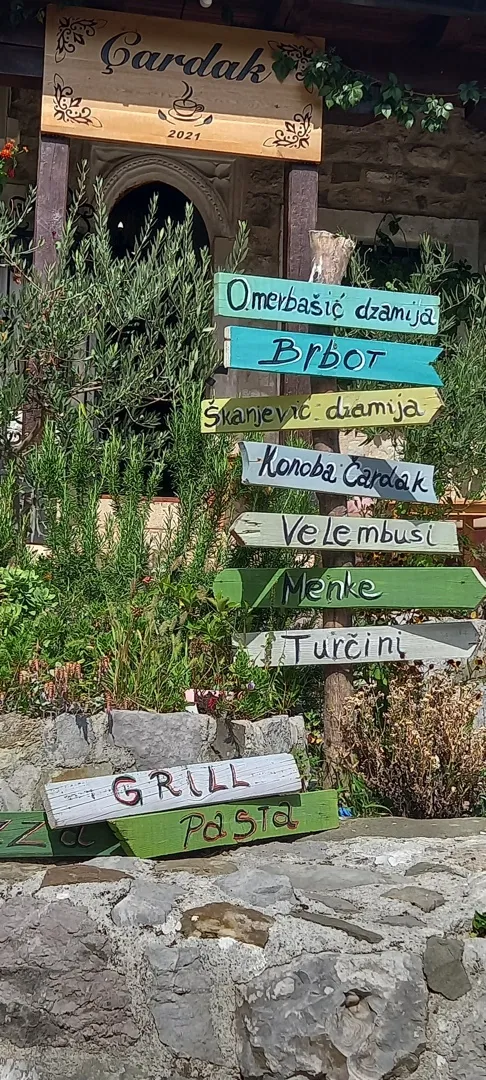 Çardak
2021
Omerbašić dzamija
BrboT
Škanjević dzamija
Konoba Čardak
Velembusi
Menke
Turčini
GRILL
Pasta
zza